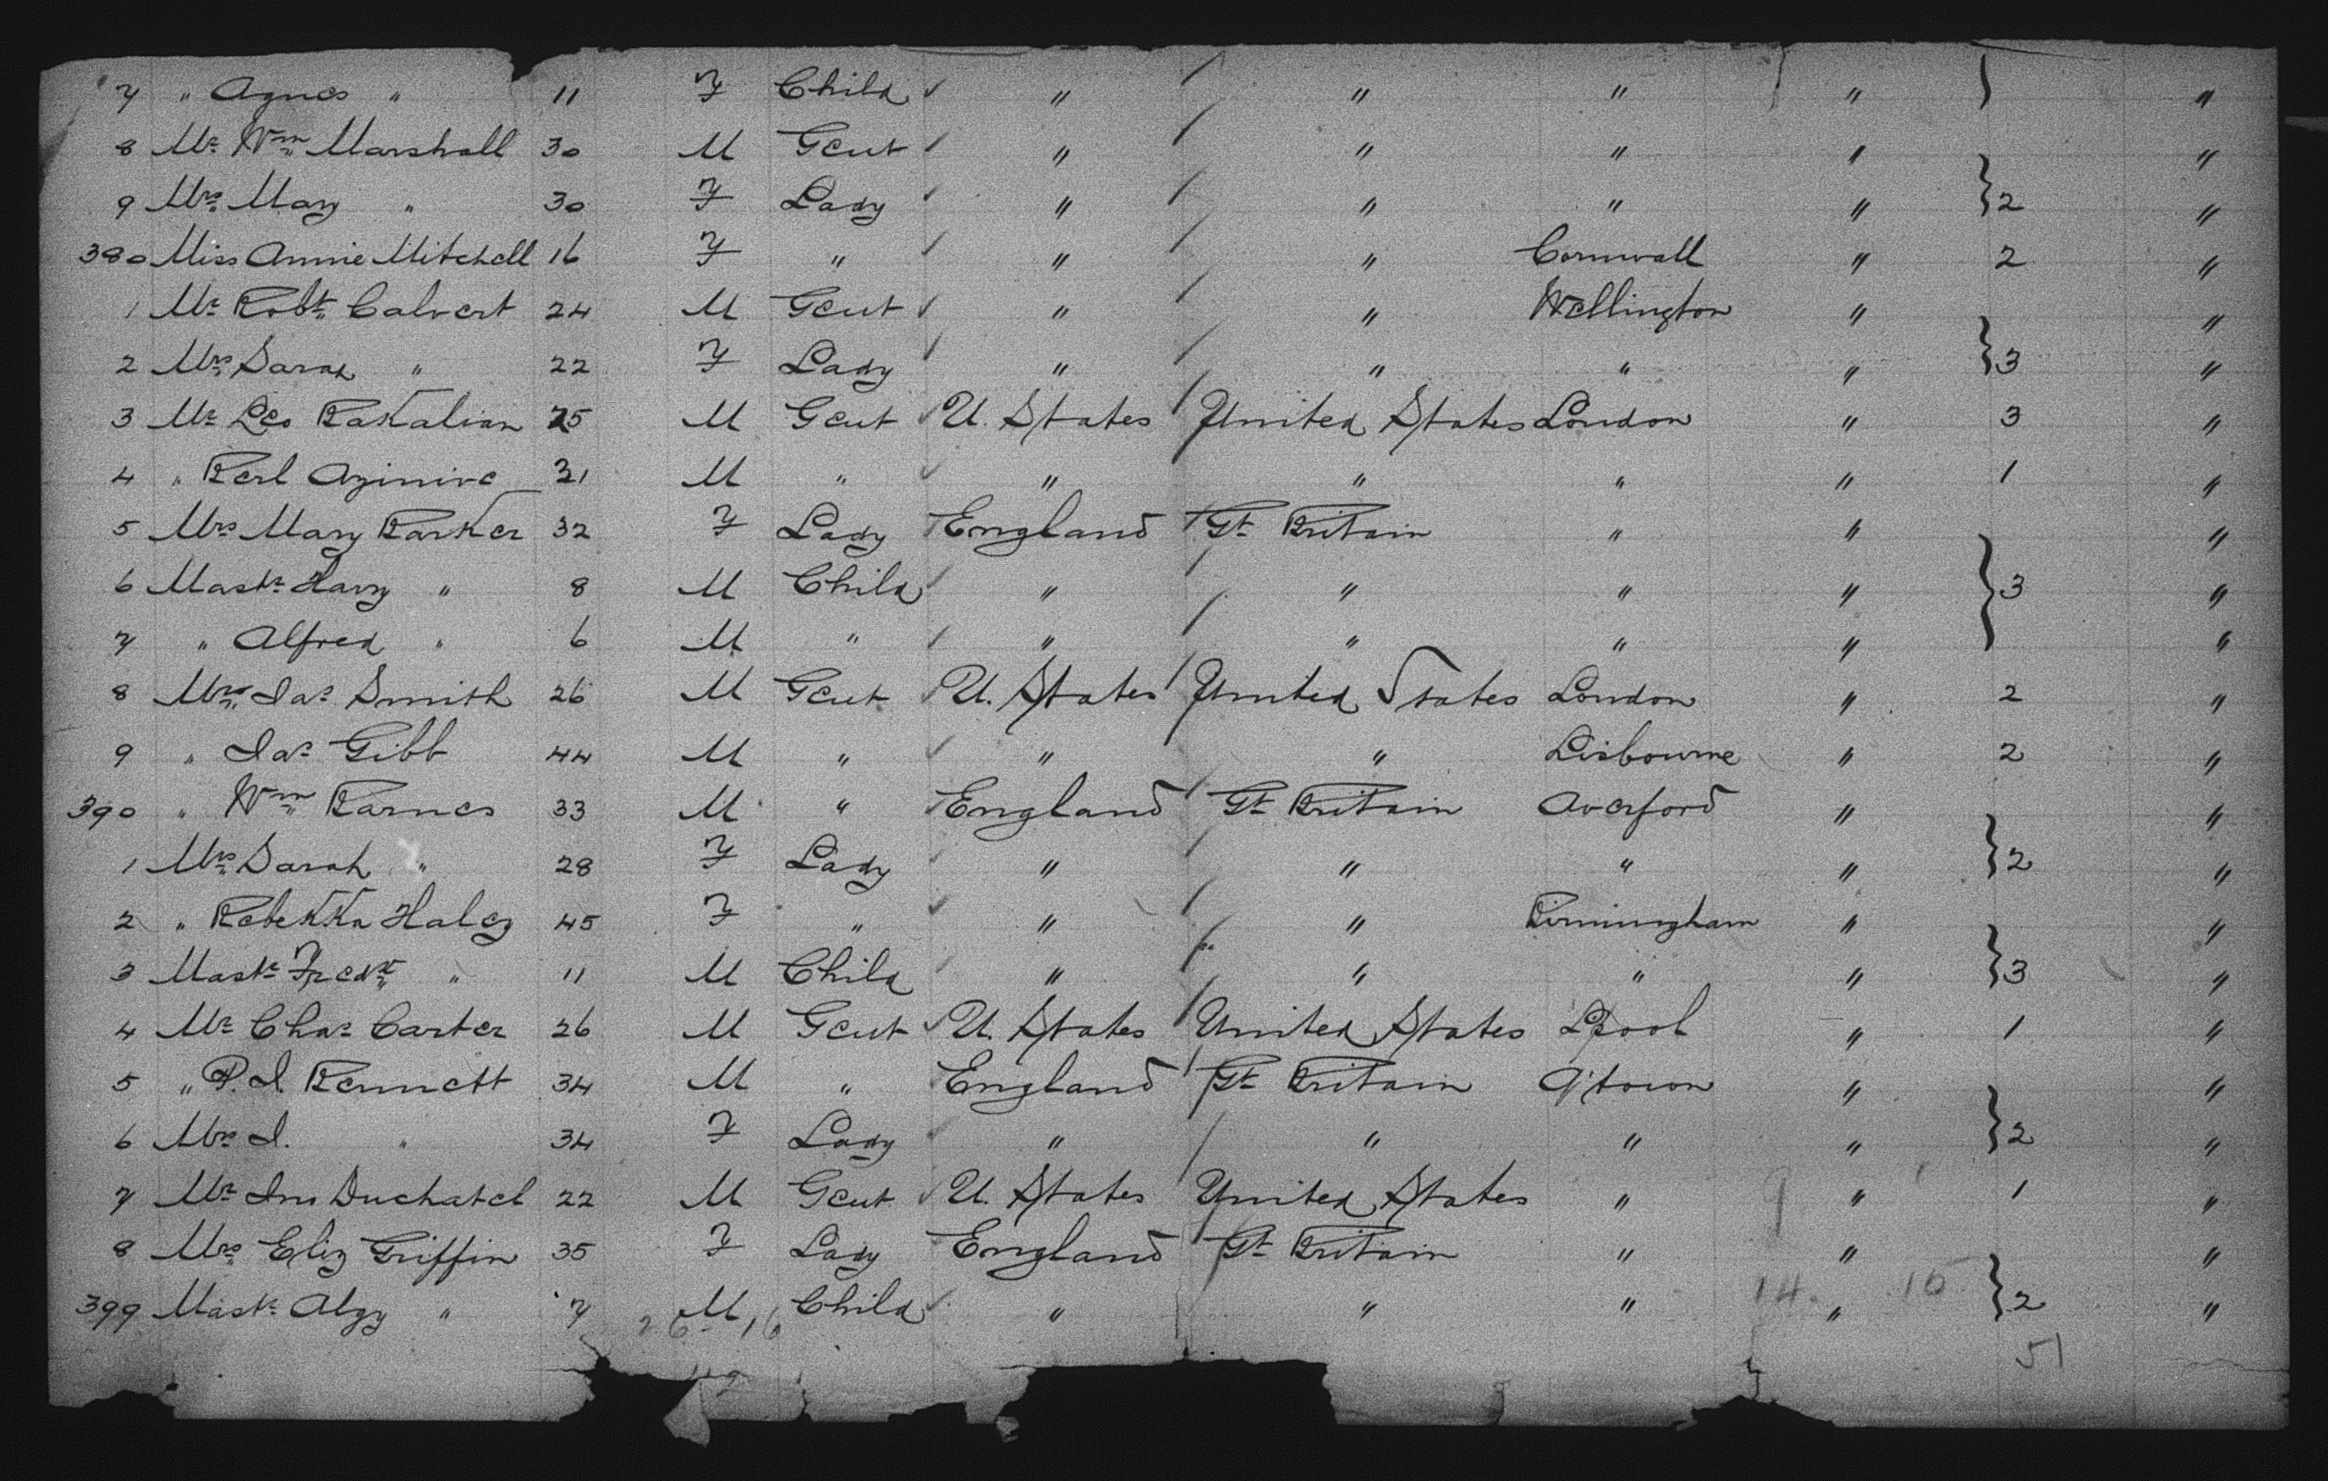 7 " Agnes " 11 F Child " " " " "
8 Mr Wm Marshall 30 M Gent " " " " "
9 Mrs Mary " 30 F Lady " " " " 2 "
380 Miss Annie Mitchell 16 F " " " Cornwall " 2 "
1 Mr Robt Calvert 24 M Gent " " Wellington " "
2 Mrs Sarah " 22 F Lady " " " " 3 "
3 Mr Leo Bakalian 25 M Gent U. States United States London " 3 "
4 " Berl 21 M " " " " " 1 "
5 Mrs Mary Barker 32 F Lady England Gt Britain " " "
6 Mastr Harry " 8 M Child " " " " 3 "
7 " Alfred " 6 M " " " " " "
8 Jas Smith 26 M Gent U. States United States London " 2 "
9 " Jas Gibb 44 M " " " Lisbourne " 2 "
390 " Wm Barnes 33 M " England Gt Britain Averford " "
1 Mrs Sarah " 28 F Lady " " " " 2 "
2 " Rebekka Haley 45 F " " " Birmingham " "
3 Mastr Fredk " 11 M Child " " " " 3 "
4 Mr Chas Carter 26 M Gent U. States United States Lpool " 1 "
5 " P. J. Bennett 34 M " England Gt Britain Q'town " "
6 Mrs J. " 34 F Lady " " " " 2 "
7 Mr Jno Duchatel 22 M Gent U. States United States " 9 " 1 "
8 Mrs Eliz Griffin 35 F Lady England Gt Britain " " "
399 Mastr Algy " 7 M Child " " " 14 " 15 2 "
26 16
51